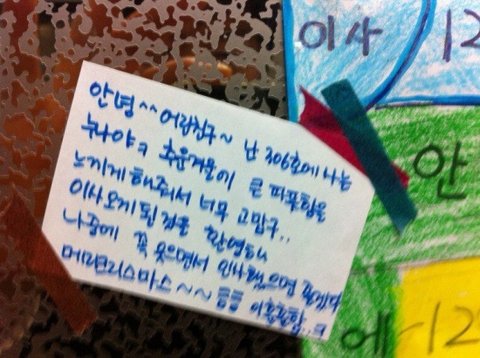 안녕^^ 어린친구~ 난 306호에 나는
누나야ㅋ 추운겨울이 큰 따뜻함을
느끼게 해줘서 너무 고맙구..
이사오게 된 것을 환영해
나중에 꼭 웃으면서 인사했으면 좋겠다
메리크리스마스~~
이사 12
안
에 12